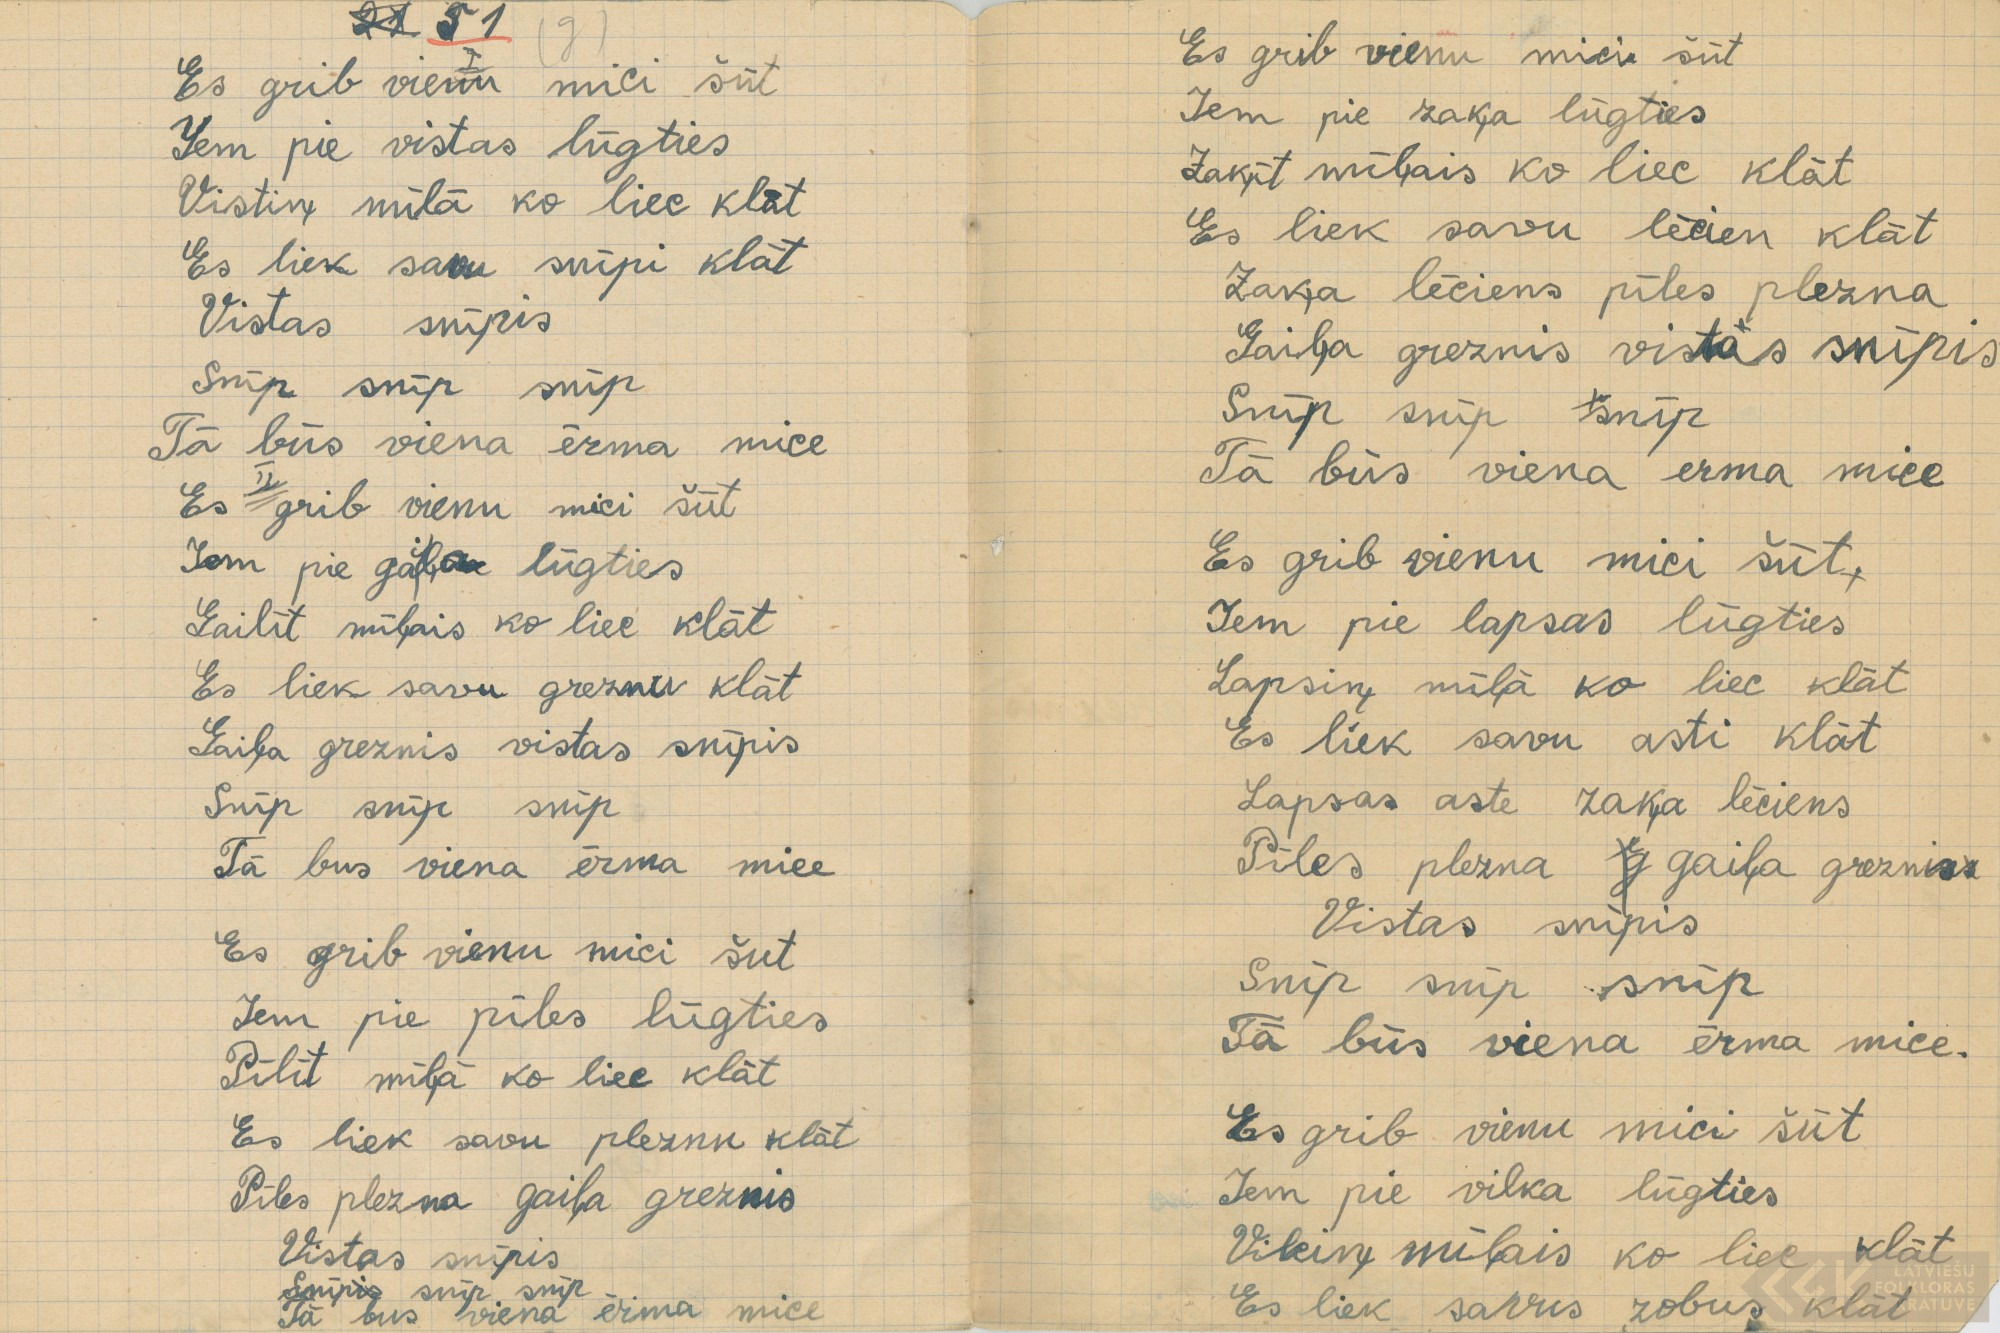 51 (g)
I
Es grib vienu mici šūt
Iem pie vistas lūgties
Vistiņ mīlā ko liec klāt
Es liek savu snīpi klāt
Vistas snīpis
Snīp snīp snīp
Tā būs viena ērma mice
II
Es grib vienu mici šūt
Iem pie gaiļa lūgties
Gailīt mīļais ko liec klāt
Es liek savu greznu klāt
Gaiļa greznis vistas snīpis
Snīp snīp snīp
Tā bus viena ērma mice
Es grib vienu mici šut
Iem pie pīles lūgties
Pīlīt mīļā ko liec klāt
Es liek savu pleznu klāt
Pīles plezna gaiļa greznis
Vistas snīpis
Snīpis snīp snīp
Tā bus viena ērma mice
Es grib vienu mici šūt
Iem pie zaķa lūgties
Zaķīt mīļais ko liec klāt
Es liek savu lēcien klāt
Zaķa lēciens pīles plezna
Gaiļa greznis vistas snīpis
Snīp snīp snīp
Tā būs viena erma mice
Es grib vienu mici šūt
Iem pie lapsas lūgties
Lapsiņ mīļā ko liec klāt
Es liek savu asti klāt
Lapsas aste zaķa lēciens
Pīles plezna gaiļa greznis
Vistas snīpis
Snīp snīp snīp
Tā būs viena ērma mice.
Es grib vienu mici šūt
Iem pie vilka lūgties
Vilciņ mīļais ko liec klāt
Es liek savus zobus klāt
LATVIEŠU
FOLKLORAS
KRĀTUVE